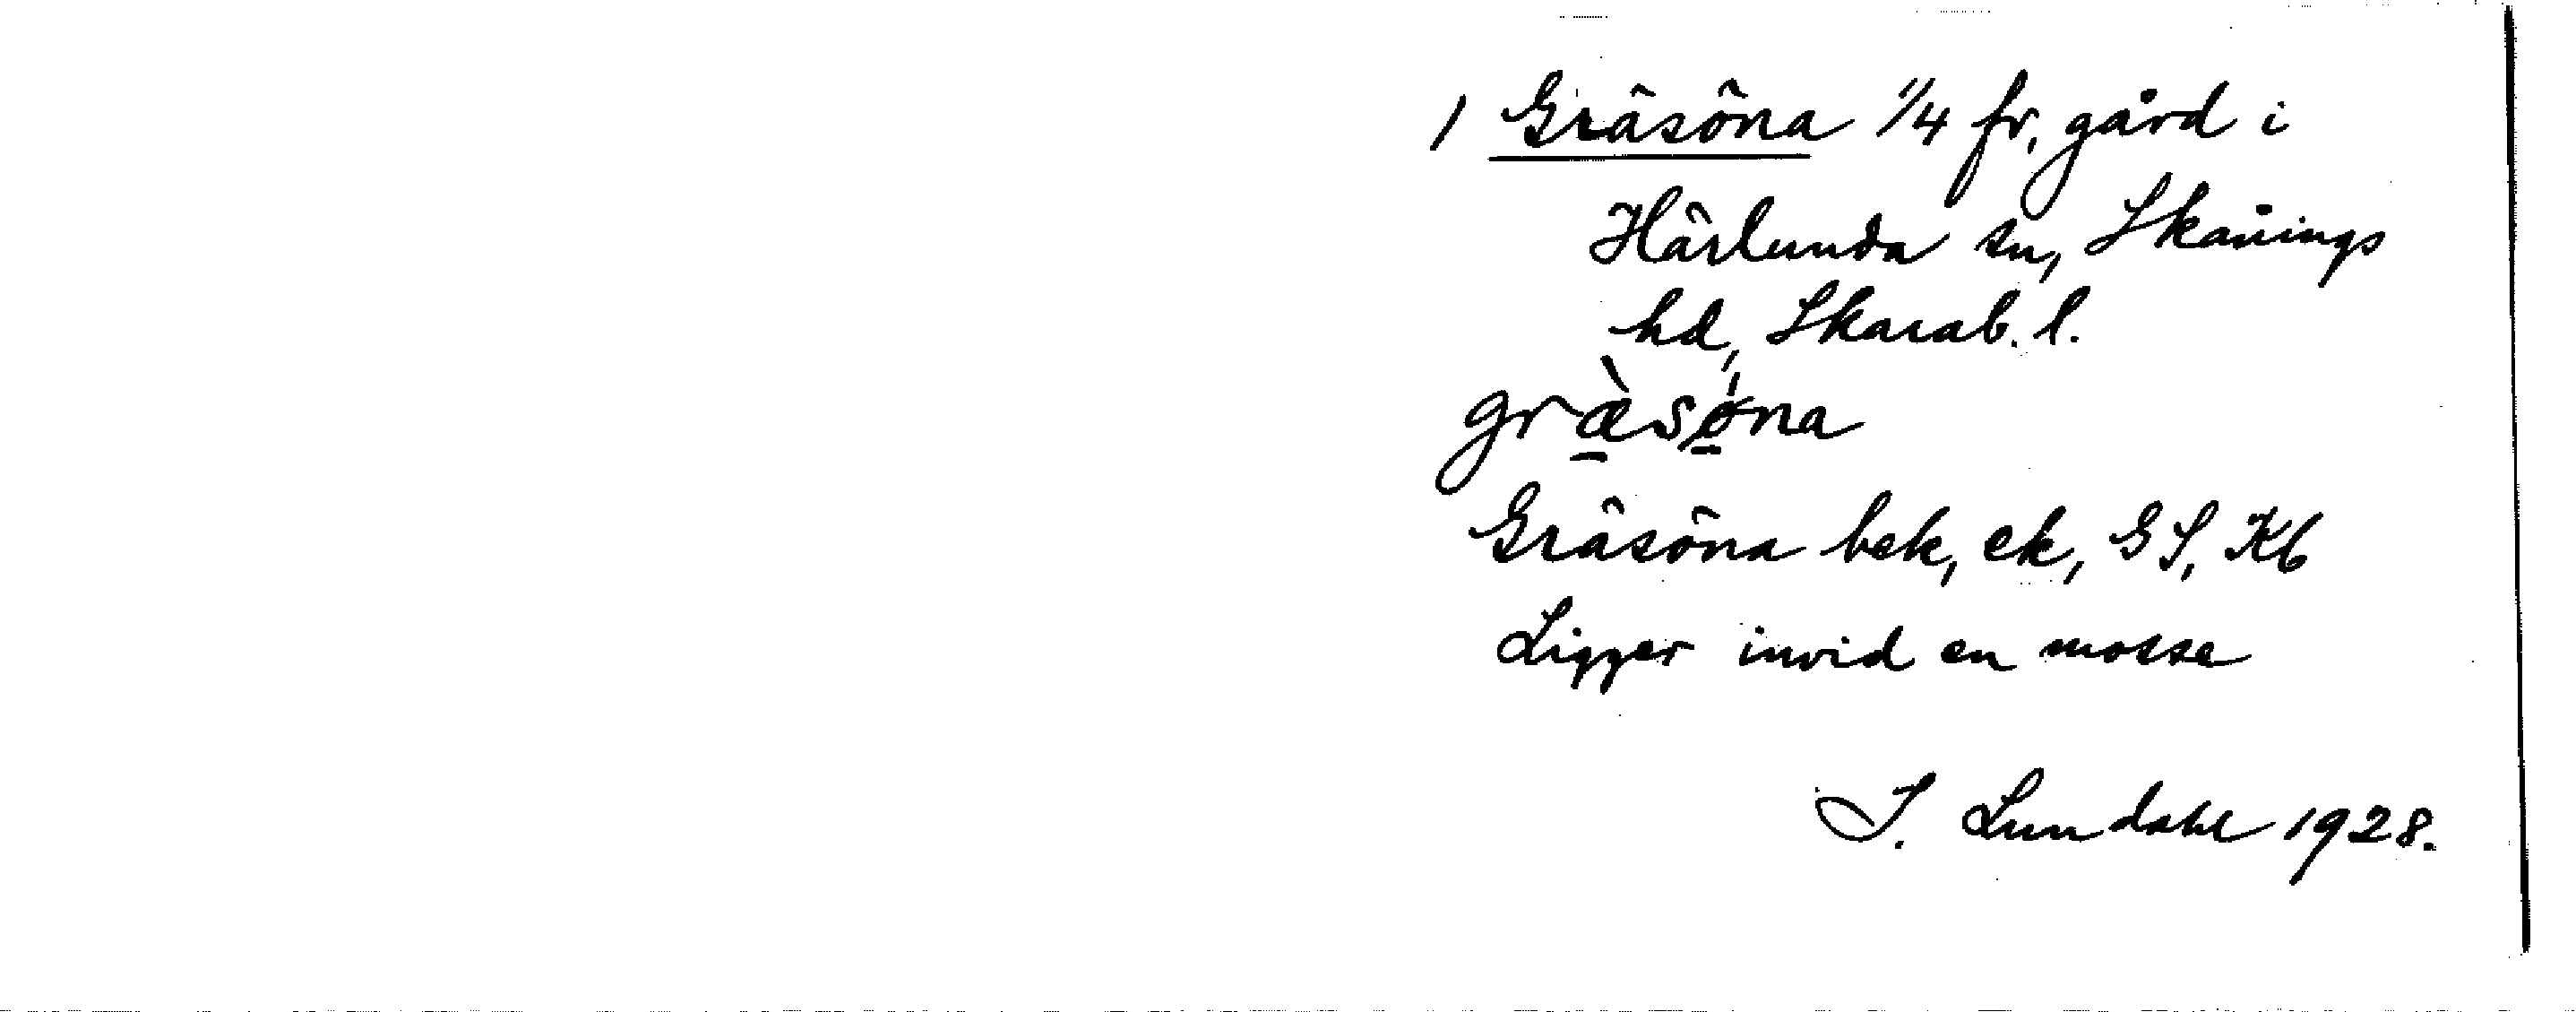 1 Gräsöna 1/4 fr, gård i
Härlunda sn, Skånings
hd, Skarab. l.
græ̀sø̗na
Gräsöna bek, ek, GS, Kb
Ligger invid en mosse
I. Lundahl 1928.